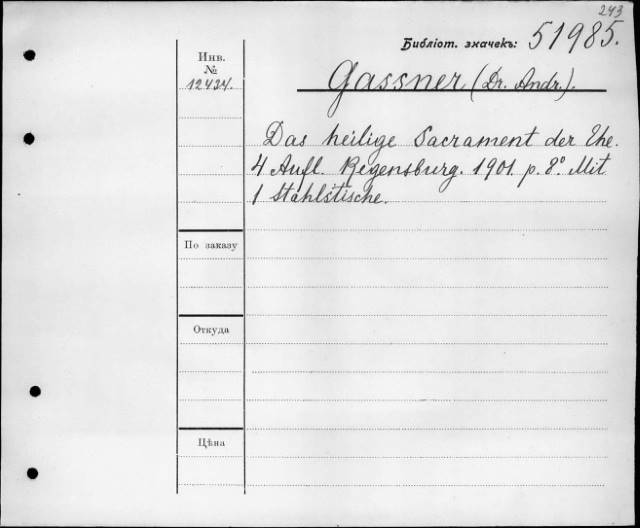 243
Библіот. значекъ: 51985.
Инв.
№
12434.
Gassner (Dr. Andr.).
Das heilige Sacrament der Ehe.
4 Aufl. Regensburg. 1901. p. 8º. Mit
1 Stahlstiche.
По заказу
Откуда
Цѣна